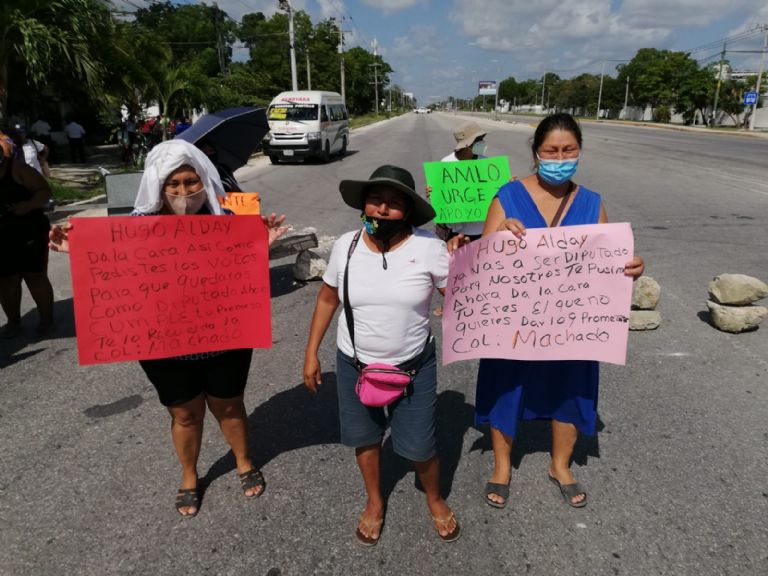 HUGO ALDAY
Da la CaRa Así Como
Pedistes los votos
Para que quedaras
Como DiPutado Ahora
CUMPLE tu Promeza
Te lo Recuerda la
COL: MACHADO
NTE
AMLO
URGE
APOYO
HUGO ALDAY
Ya vas a Ser DIPUtado
Por Nosotros Te Pusim
Ahora Da la CaRa
Tú Eres El que no
quieres Dar lo q Prometist
COL: MACHADO